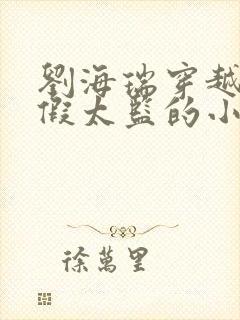 劉海瑞穿越
假太監的小
徐萬里